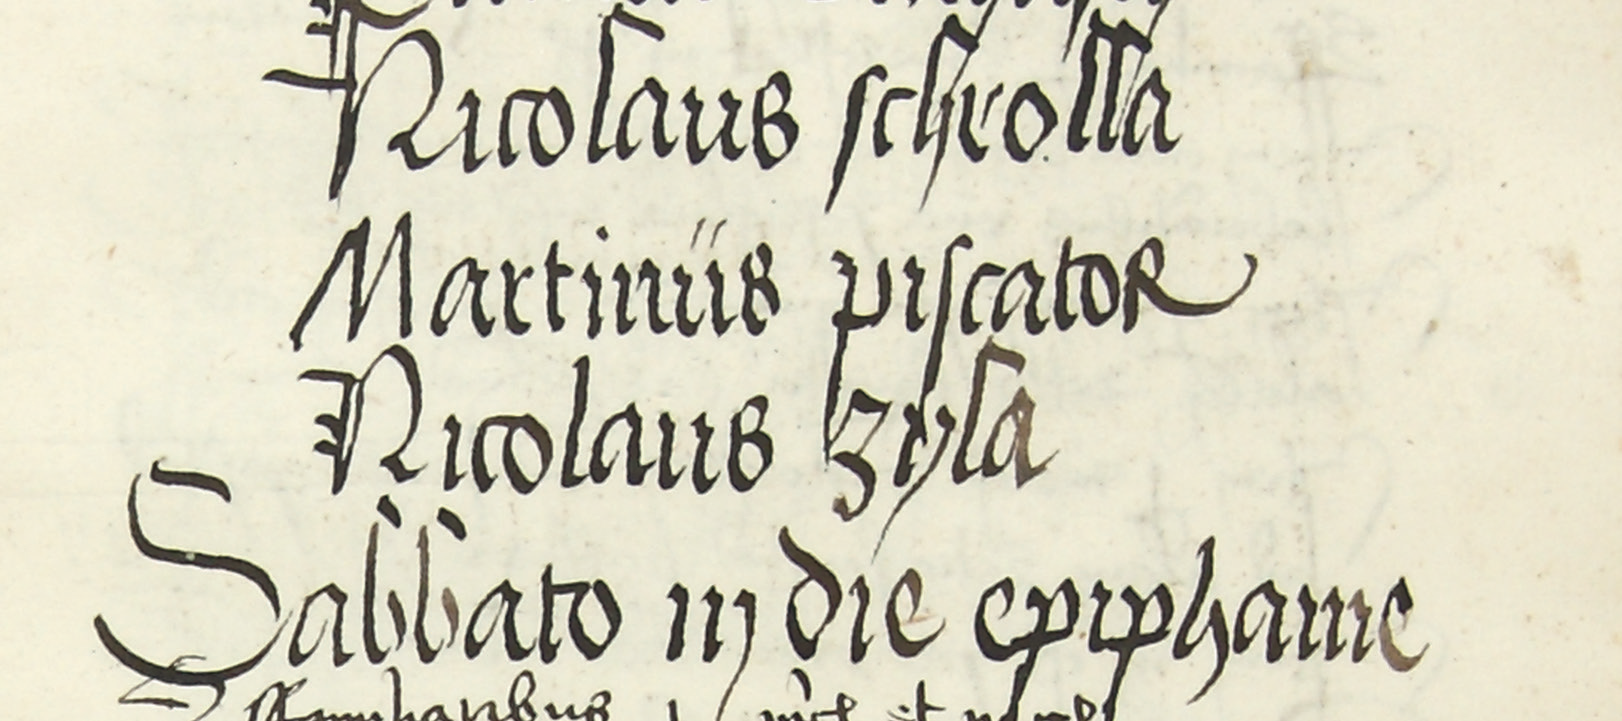 Nicolaus scholla
Martinus piscator
Nicolaus zyla
Sabbato in die epiphanie